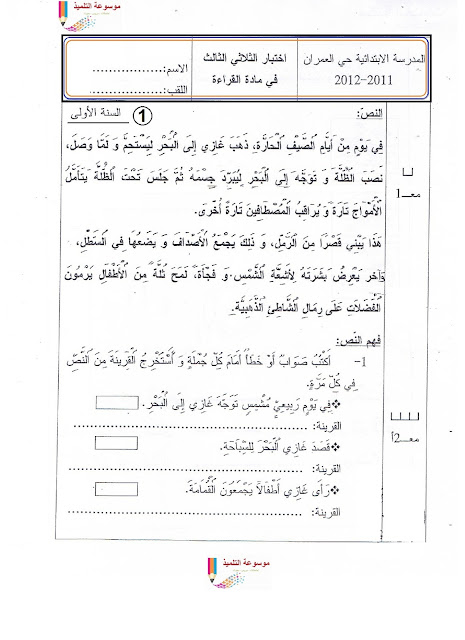 موسوعة التلميذ
المدرسة الابتدائية حي العمران
2012-2011
اختبار الثلاثي الثالث
في مادة القراءة
الاسم:.................
اللقب:.................
النص:
1
السنة الأولى
فِي يَوْمٍ مِنْ أَيَّامِ الصَّيْفِ الْحَارَّةِ، ذَهَبَ غَازِي إِلَى الْبَحْرِ لِيَسْتَحِمَّ وَ لَمَّا وَصَلَ،
نَصَبَ الظُّلَّةَ وَ تَوَجَّهَ إِلَى الْبَحْرِ لِيُبَرِّدَ جِسْمَهُ ثُمَّ جَلَسَ تَحْتَ الظُّلَّةِ يَتَأَمَّلُ
الْأَمْوَاجَ تَارَةً وَ يُرَاقِبُ الْمُصْطَافِينَ تَارَةً أُخْرَى.
هَذَا يَبْنِي قَصْرًا مِنَ الرَّمْلِ، وَ ذَلِكَ يَجْمَعُ الْأَصْدَافَ وَ يَضَعُهَا فِي السَّطْلِ،
وَآخر يُعَرِّضُ بَشَرَتَهُ لِأَشِعَّةِ الشَّمْسِ وَ فَجْأَةً، لَمَحَ ثُلَّةً مِنَ الْأَطْفَالِ يَرْمُونَ
الْفَضَلَاتِ عَلَى رِمَالِ الشَّاطِئِ الذَّهَبِيَّةِ.
مـــع1
فهم النّص:
1- أَكْتُبُ صَوَابٌ أَوْ خَطَأٌ أَمَامَ كُلِّ جُمْلَةٍ وَ أَسْتَخْرِجُ الْقَرِينَةَ مِنَ النَّصِّ
فِي كُلِّ مَرَّةٍ.
❖فِي يَوْمٍ رَبِيعِيٍّ مُشْمِسٍ تَوَجَّهَ غَازِي إِلَى الْبَحْرِ.
القرينة: ..................................................
❖قَصَدَ غَازِي الْبَحْرَ لِلسِّبَاحَةِ.
القرينة: ..................................................
❖رَأَى غَازِي أَطْفَالًا يَجْمَعُونَ الْقُمَامَةَ.
القرينة: ..................................................
مـــع2أ
موسوعة التلميذ